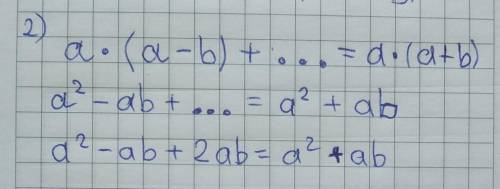 2)
a·(a-b)+...=a·(a+b)
a²-ab+...=a²+ab
a²-ab+2ab=a²+ab